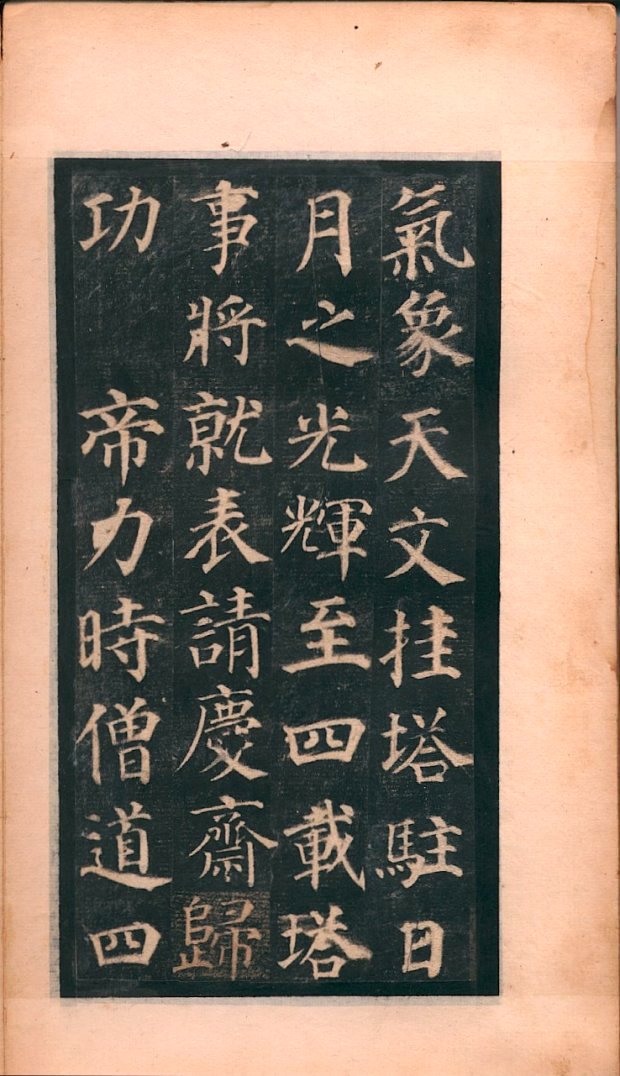 氣象天文挂塔駐日
月之光輝至四載塔
事將就表請慶齋歸
功　帝力時僧道四